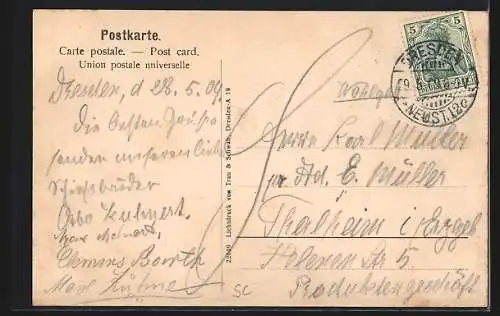 Postkarte.
Carte postale. — Post card.
Union postale universelle
5 5
DRESDEN
NEUST. 12
Dresden, d 28.5.09.
Die besten Grüße
senden unserem lieben
Otto Kuhnert.
Clemens Barth
Max Kühne
22049 Lichtdruck von Trau & Schwab, Dresden-A 19
Herrn Karl Müller
E. Müller
Thalheim i Erzgeb
Helenen Str 5.
Produktengeschäft